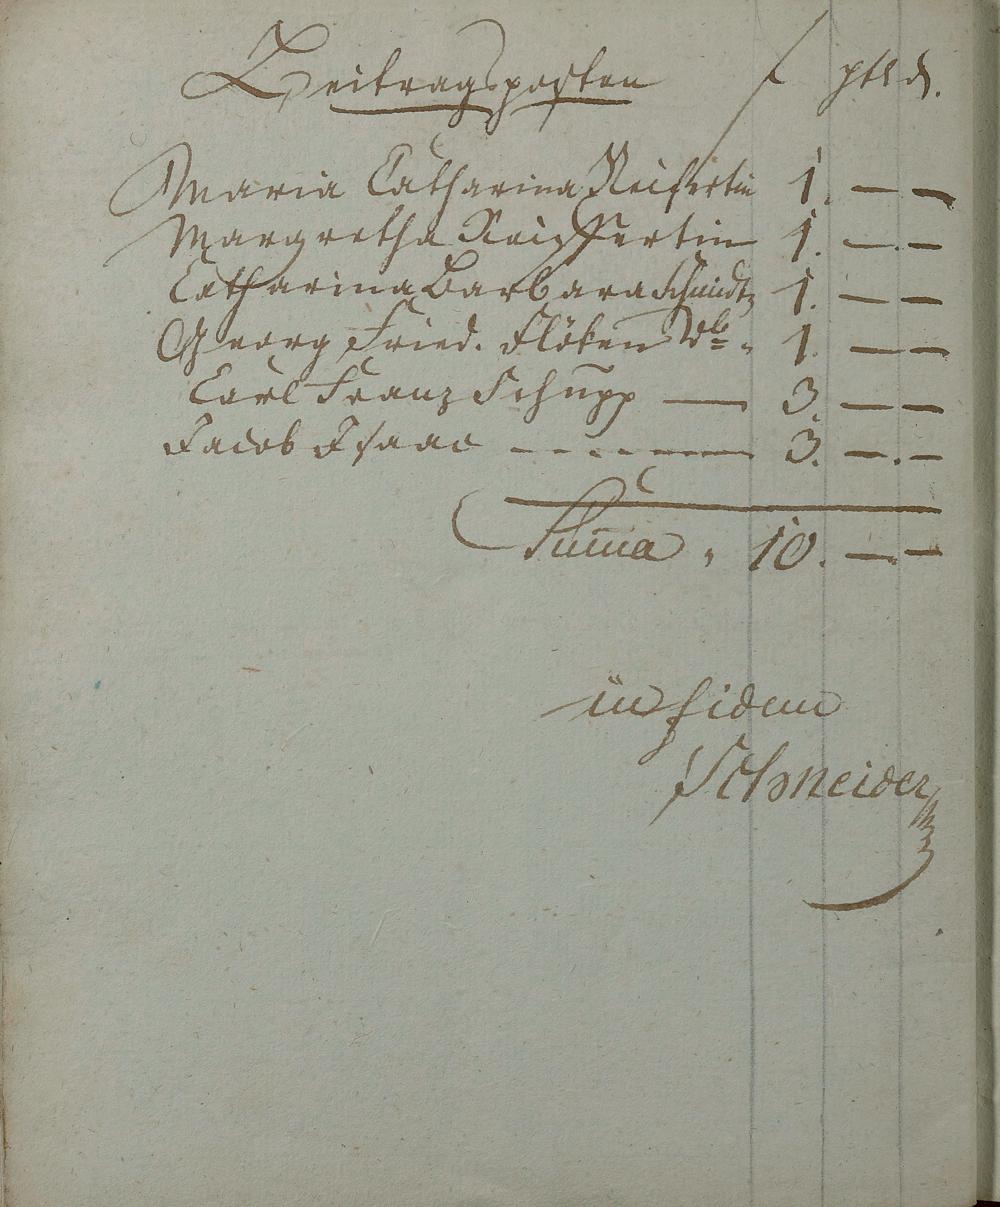 Beitragsposten f
Maria Catharina Reifertin 1. — —
Margretha Reipffertin 1. — . —
Catharina Barbara Schmidtz 1. — —
Georg Fried. Flöken 1. — —
Carl Franz Schupp — 3. — —
Jacob Isaac - - - - - 3. — . —
Suma , 10. — —
in fidem
Schneider